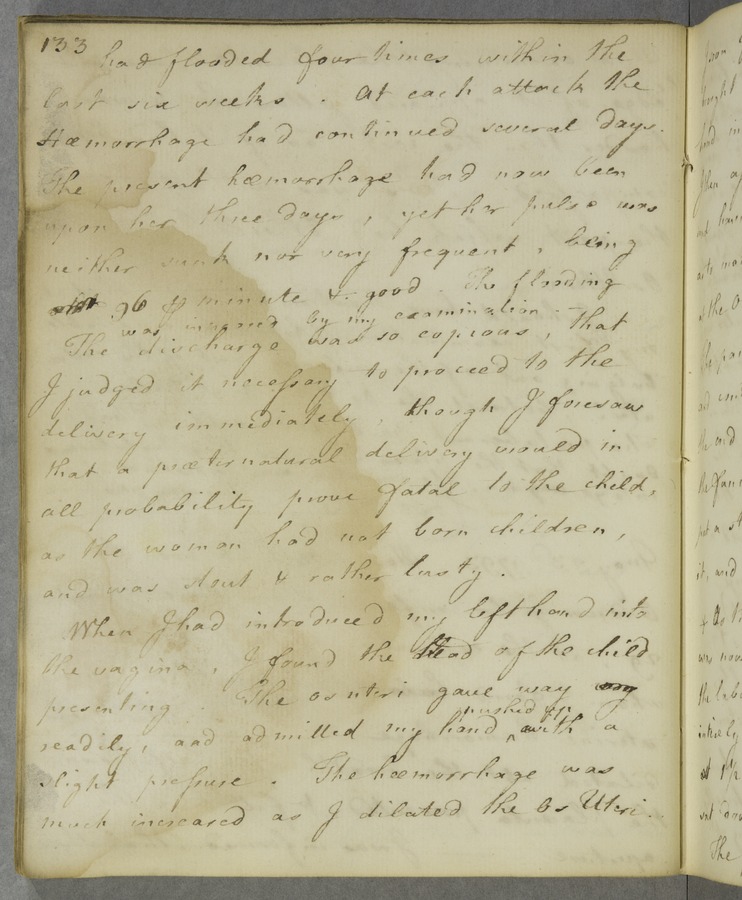 133
had flooded four times within the
last six weeks. At each attack the
Hæmorrhage had continued several days.
The present hæmorrhage had now been
upon her three days, yet her pulse was
neither sunk nor very frequent, being
96 minute & good. The flooding
was increased by my examination.
The discharge was so copious, that
I judged it necessary to proceed to the
delivery immediately, though I foresaw
that a præternatural delivery would in
all probability prove fatal to the child,
as the woman had not born children,
and was stout & rather lusty.
When I had introduced my left hand into
the vagina, I found the Head of the child
presenting. The os uteri gave way
pushed up
readily, and admitted my hand with a
slight pressure. The hæmorrhage was
much increased as I dilated the Os Uteri.